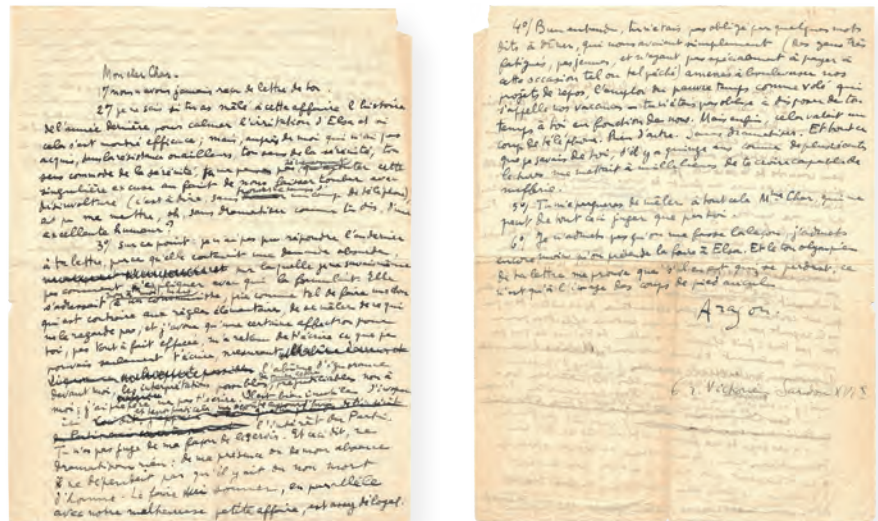 Mon cher Char.
1° nous n'avons jamais reçu de lettre de toi.
2° je ne sais si tu as mêlé à cette affaire l'histoire
de l'année dernière pour calmer l'irritation d'Elsa et si
cela s'est montré efficace ; mais, auprès de moi qui n'ai pas
acquis, dans la résistance ou ailleurs, ton sens de la sérénité, ton
sens commode de la sérénité, je ne pense pas cette
singulière excuse au fait de nous laisser tomber avec
désinvolture (c'est à dire, sans un coup de téléphone),
ait pu me mettre, oh, sans dramatiser comme tu dis, d'une
excellente humeur ?
3° sur ce point : je n'ai pas pu répondre l'an dernier
à ta lettre, parce qu'elle contenait une demande absurde,
sur laquelle je ne
pas comment m'expliquer avec qui la formulait. Elle
s'adressait à un communiste, prié comme tel de faire une chose
qui est contraire aux règles élémentaires, de se mêler de ce qui
ne le regarde pas, et j'avoue qu'une certaine affection pour
toi, pas tout à fait effacée, m'a retenu de t'écrire ce que je
pouvais seulement t'écrire, mesurant
l'abîme d'ignorance
devant moi, les interprétations possibles, préjudiciables non à
moi ; j'ai préféré ne pas t'écrire.
ici
l'intérêt du Parti.
Tu n'as pas à juger de ma façon de l'agir. Et ceci dit, ne
dramatisons rien : de ma présence ou de mon absence
il ne dépendait pas qu'il y ait ou non mort
d'homme. Le faire sonner, en parallèle
avec notre malheureuse petite affaire, est assez déloyal.
4°/ Bien entendu, tu n'étais pas obligé par quelques mots
dits à dîner, qui nous avaient simplement (des gens très
fatigués, pas jeunes, et n'ayant pas spécialement à payer à
cette occasion tel ou tel péché) amenés à bouleverser nos
projets de repos, l'emploi du pauvre temps comme volé qui
s'appelle nos vacances : tu n'étais pas obligé à disposer de ton
temps à toi en fonction de nous. Mais enfin, cela valait un
coup de téléphone. Rien d'autre. Sans dramatiser. Et tout ce
que je savais de toi, d'il y a quinze ans comme de plus récentes
lectures, me mettait à mille lieues de te croire capable de
mufflerie.
5°/ Tu m'épargneras de mêler à tout cela Mme Char, qui ne
peut de tout ceci juger que par toi.
6°/ Je n'admets pas qu'on me fasse la leçon, j'admets
encore moins qu'on prétende la faire à Elsa. Et le ton olympien
de ta lettre me prouve que s'il en est qui se perdent, ce
n'est qu'à l'image des coups de pied au cul.
Aragon.